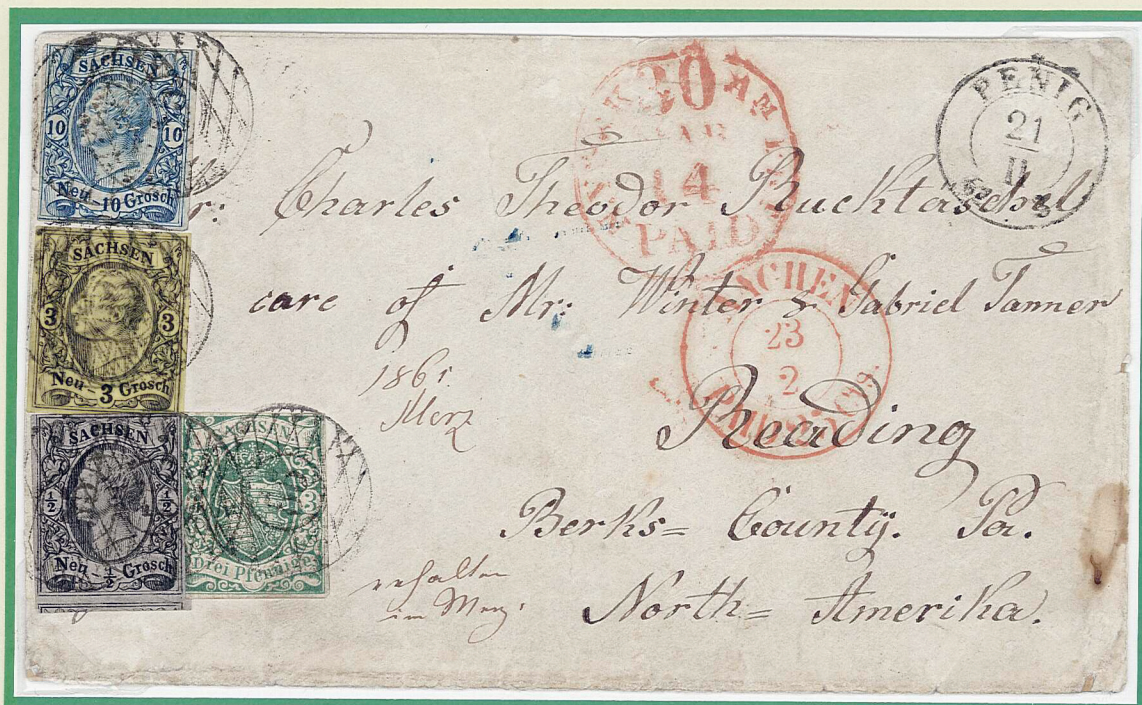 SACHSEN
10 10
Neu - 10 Grosch
SACHSEN
3 3
Neu - 3 Grosch
SACHSEN
½ ½
Neu - ½ Grosch
3
Drei Pfennige
AM
30
14
PAID
PENIG
21
II
AACHEN
23
2
Mr: Charles Theodor Rucktäschel
care of Mr: Winter & Gabriel Tanner
Reading
Berks= County. Pa.
North= Amerika.
1861
Merz
erhalten
im Merz.